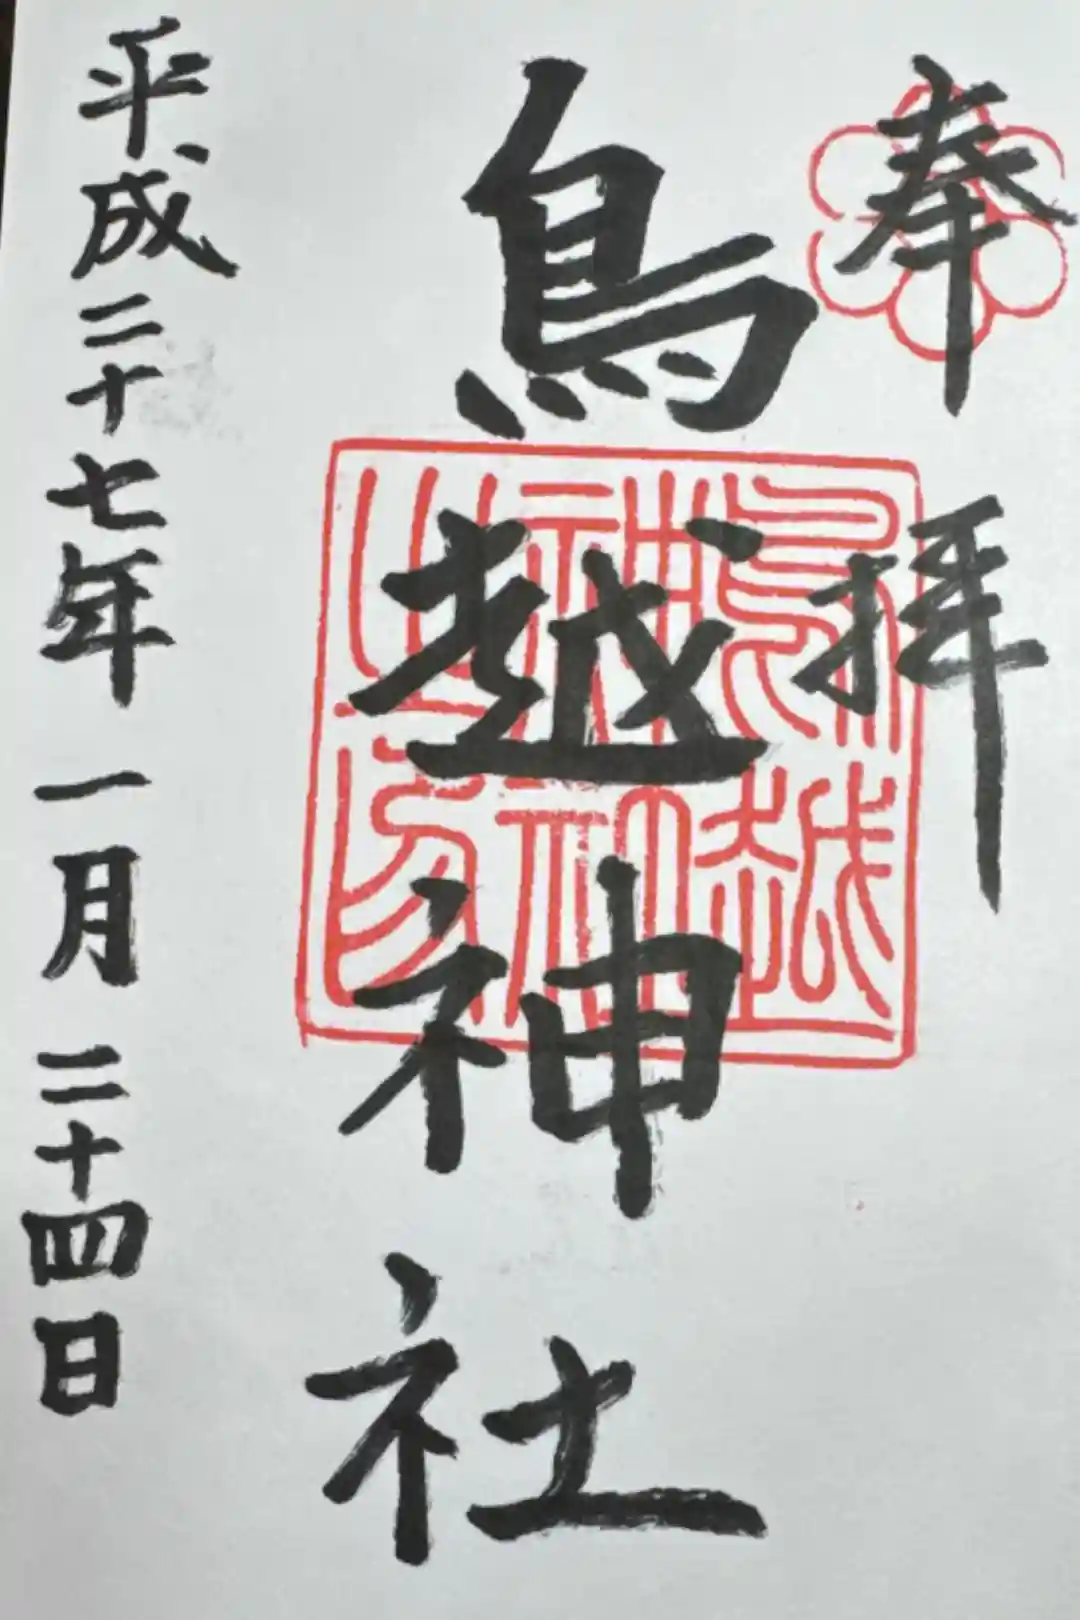 奉拝
鳥越神社
平成二十七年一月二十四日
鳥越神社之印